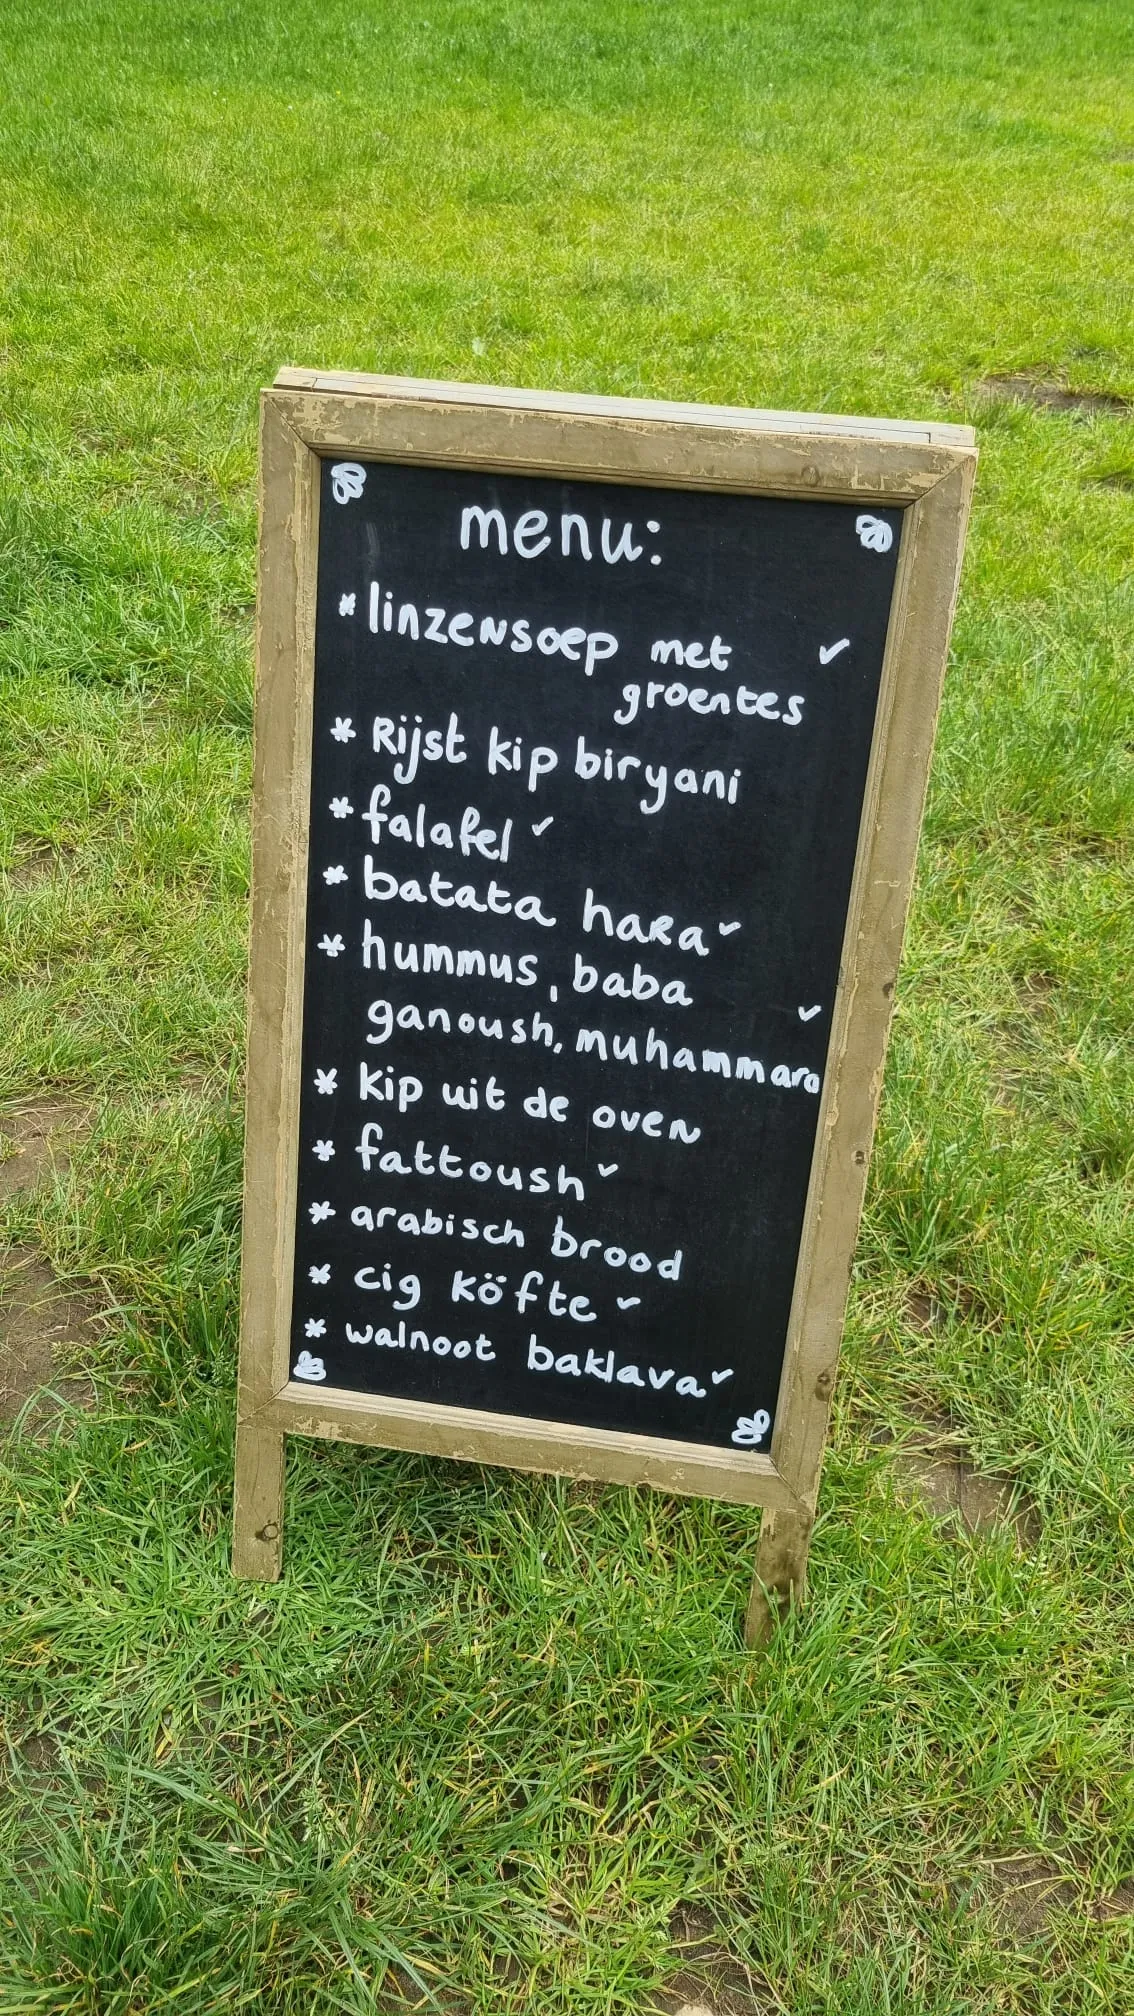 menu:
* linzensoep met ✓
groentes
* Rijst kip biryani
* falafel ✓
* batata hara ✓
* hummus, baba
ganoush, muhammara ✓
* kip uit de oven
* fattoush ✓
* arabisch brood
* cig köfte ✓
* walnoot baklava ✓